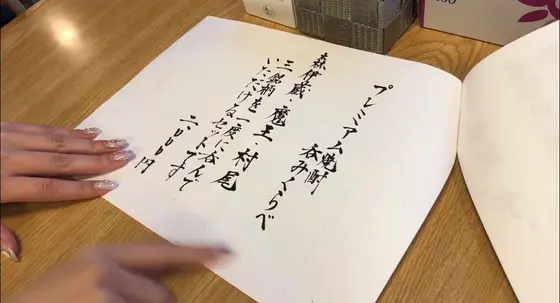 プレミアム焼酎
呑みくらべ
森伊蔵・魔王・村尾
三銘柄を一度に呑んで
いただけるセットです
二、000円